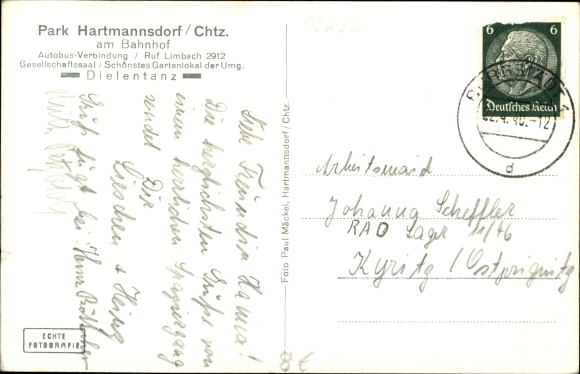 Park Hartmannsdorf / Chtz.
am Bahnhof
Autobus-Verbindung / Ruf Limbach 2912
Gesellschaftssaal / Schönstes Gartenlokal der Umg.
Dielentanz
Liebe Freundin Hanna!
Die herzlichsten Grüße von
einem herrlichen Spaziergang
sendet Die
Lieschen + Heinz
Gruß fügt bei: Heinz
ECHTE
FOTOGRAFIE
Foto Paul Mäckel, Hartmannsdorf / Chtz.
6 6
Deutsches Reich
BURGSTÄDT 1
22.4.40.-12
d
Arbeitsmaid
Johanna Scheffler
RAD Lager 11/46
Kyritz / Ostprignitz